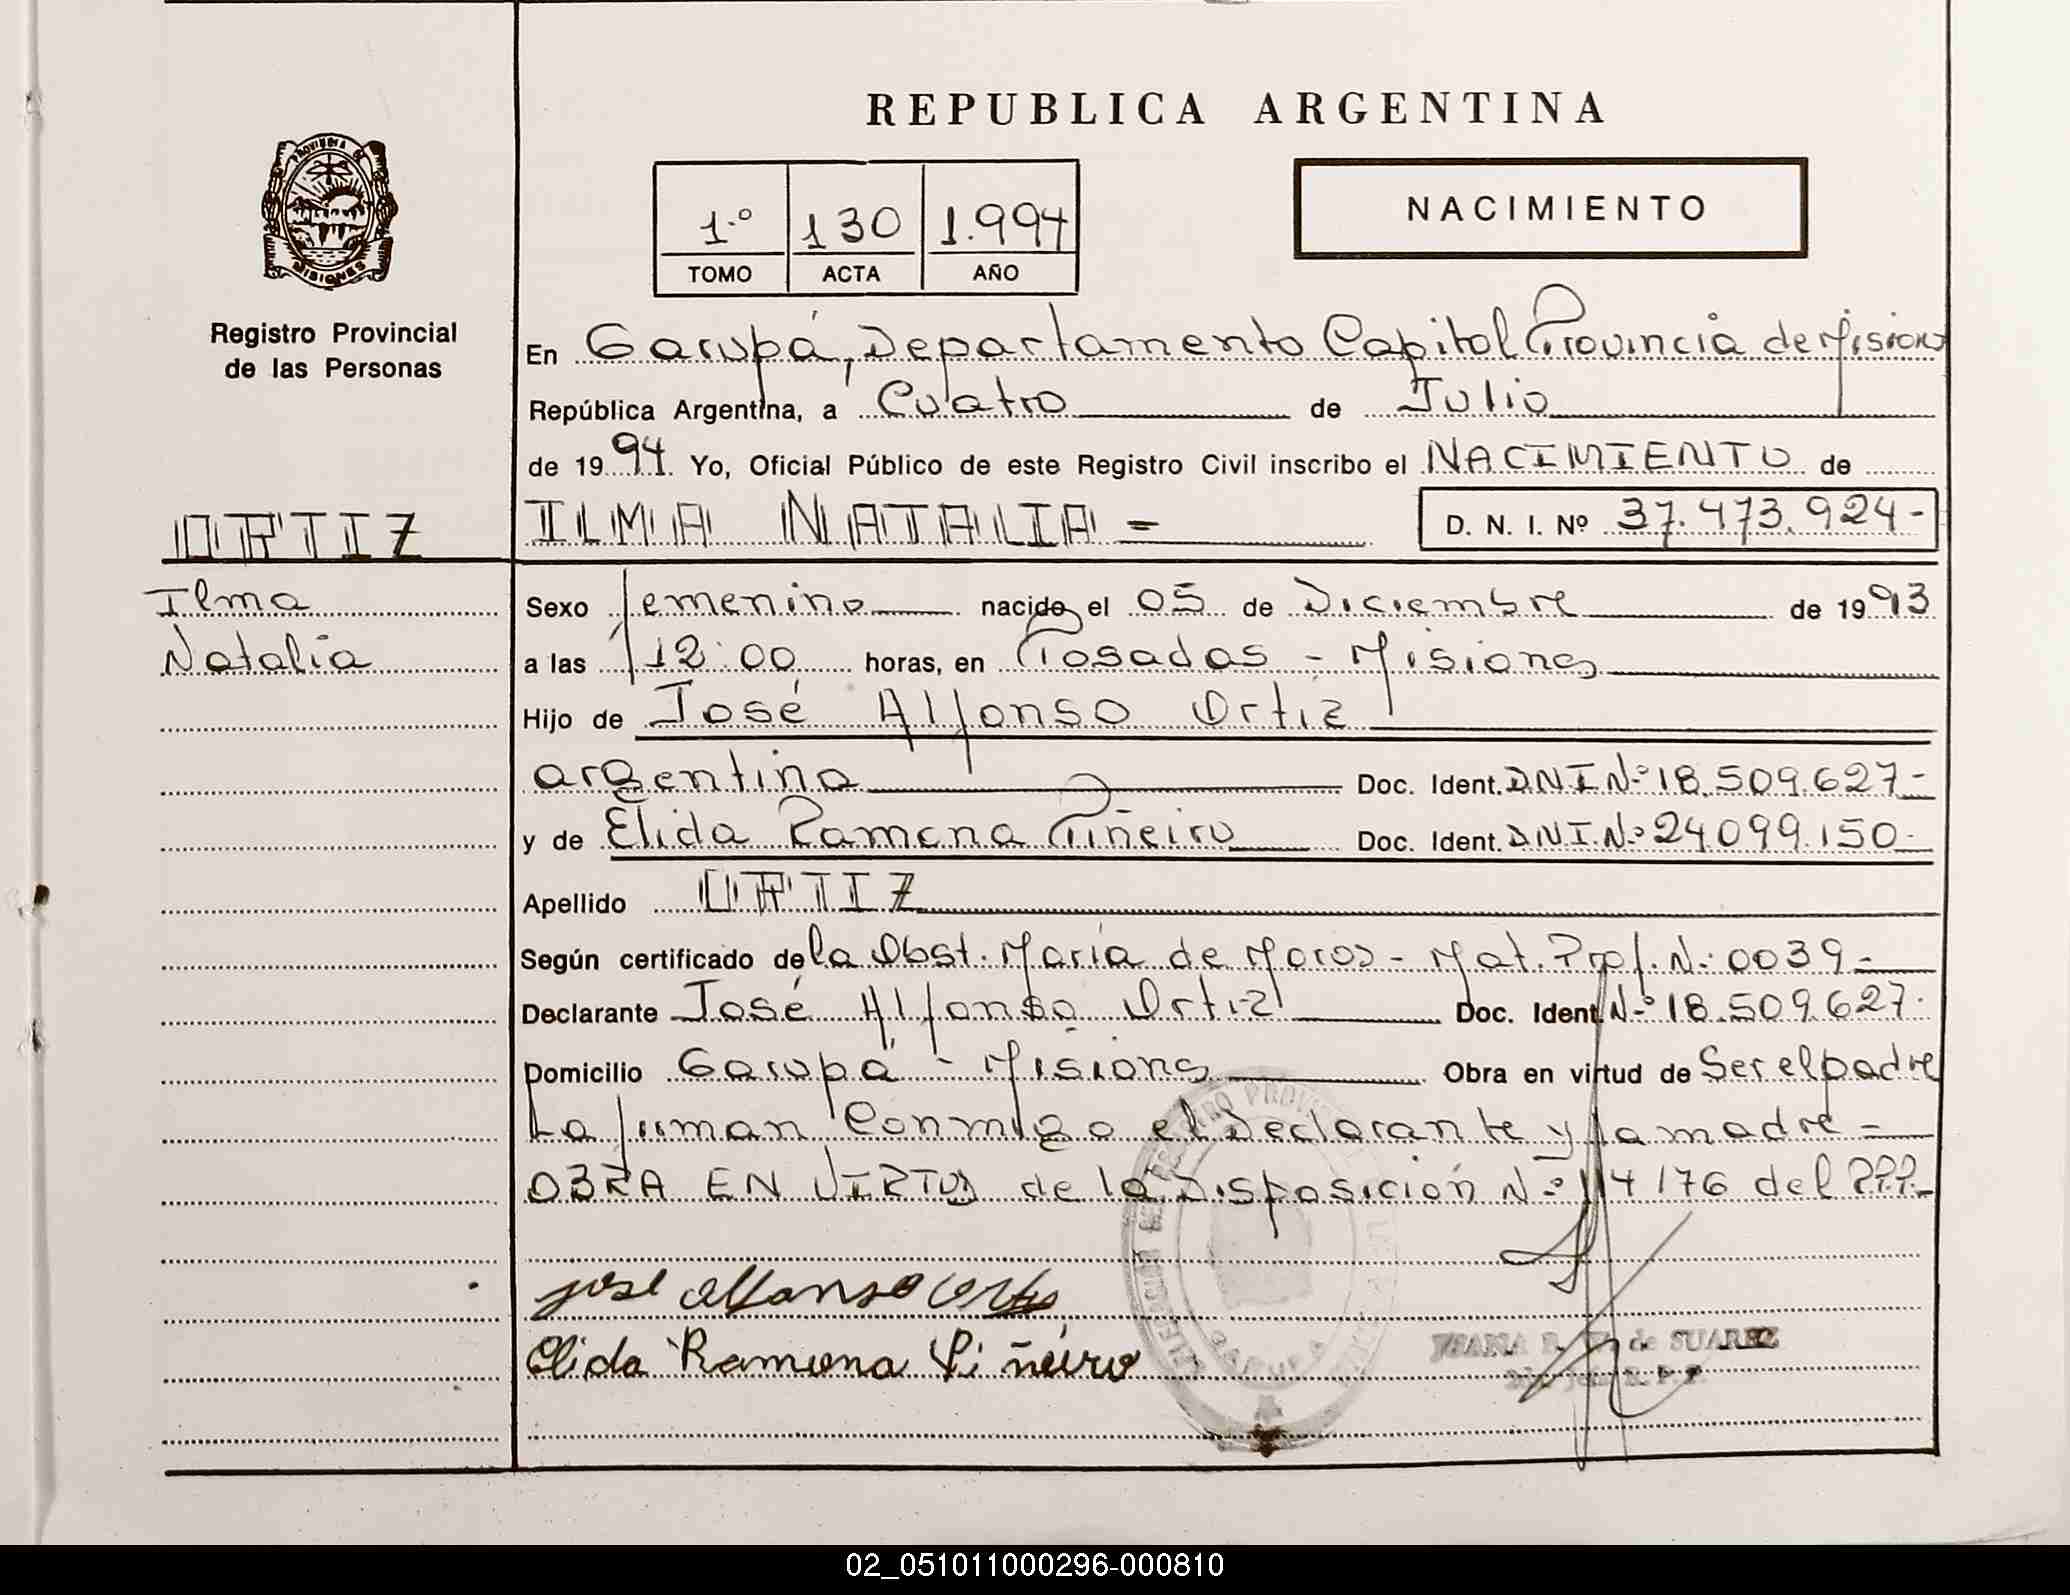 REPUBLICA ARGENTINA
PROVINCIA DE
MISIONES
Registro Provincial
de las Personas
1.º 130 1.994
TOMO ACTA AÑO
NACIMIENTO
En Garupá, Departamento Capital Provincia de Misiones
República Argentina, a Cuatro de Julio
de 1994 Yo, Oficial Público de este Registro Civil inscribo el NACIMIENTO de
ORTIZ
ILMA NATALIA = D. N. I. Nº 37.473.924-
Ilma
Natalia
Sexo femenino nacido el 05 de Diciembre de 1993
a las 12:00 horas, en Posadas - Misiones
Hijo de José Alfonso Ortiz
argentino Doc. Ident. DNI Nº 18.509.627-
y de Elida Ramona Piñeiro Doc. Ident. DNI. Nº 24.099.150-
Apellido ORTIZ
Según certificado de la Obst. María de Moros - Mat. Prof. Nº 0039-
Declarante José Alfonso Ortiz Doc. Ident. Nº 18.509.627.
Domicilio Garupá - Misiones Obra en virtud de Ser el padre
La firman Conmigo el Declarante y la madre -
OBRA EN VIRTUD de la Disposición Nº 114/76 del RPP.-
José Alfonso Ortiz
Elida Ramona Piñéiro
GARUPA
de SUAREZ
02_051011000296-000810